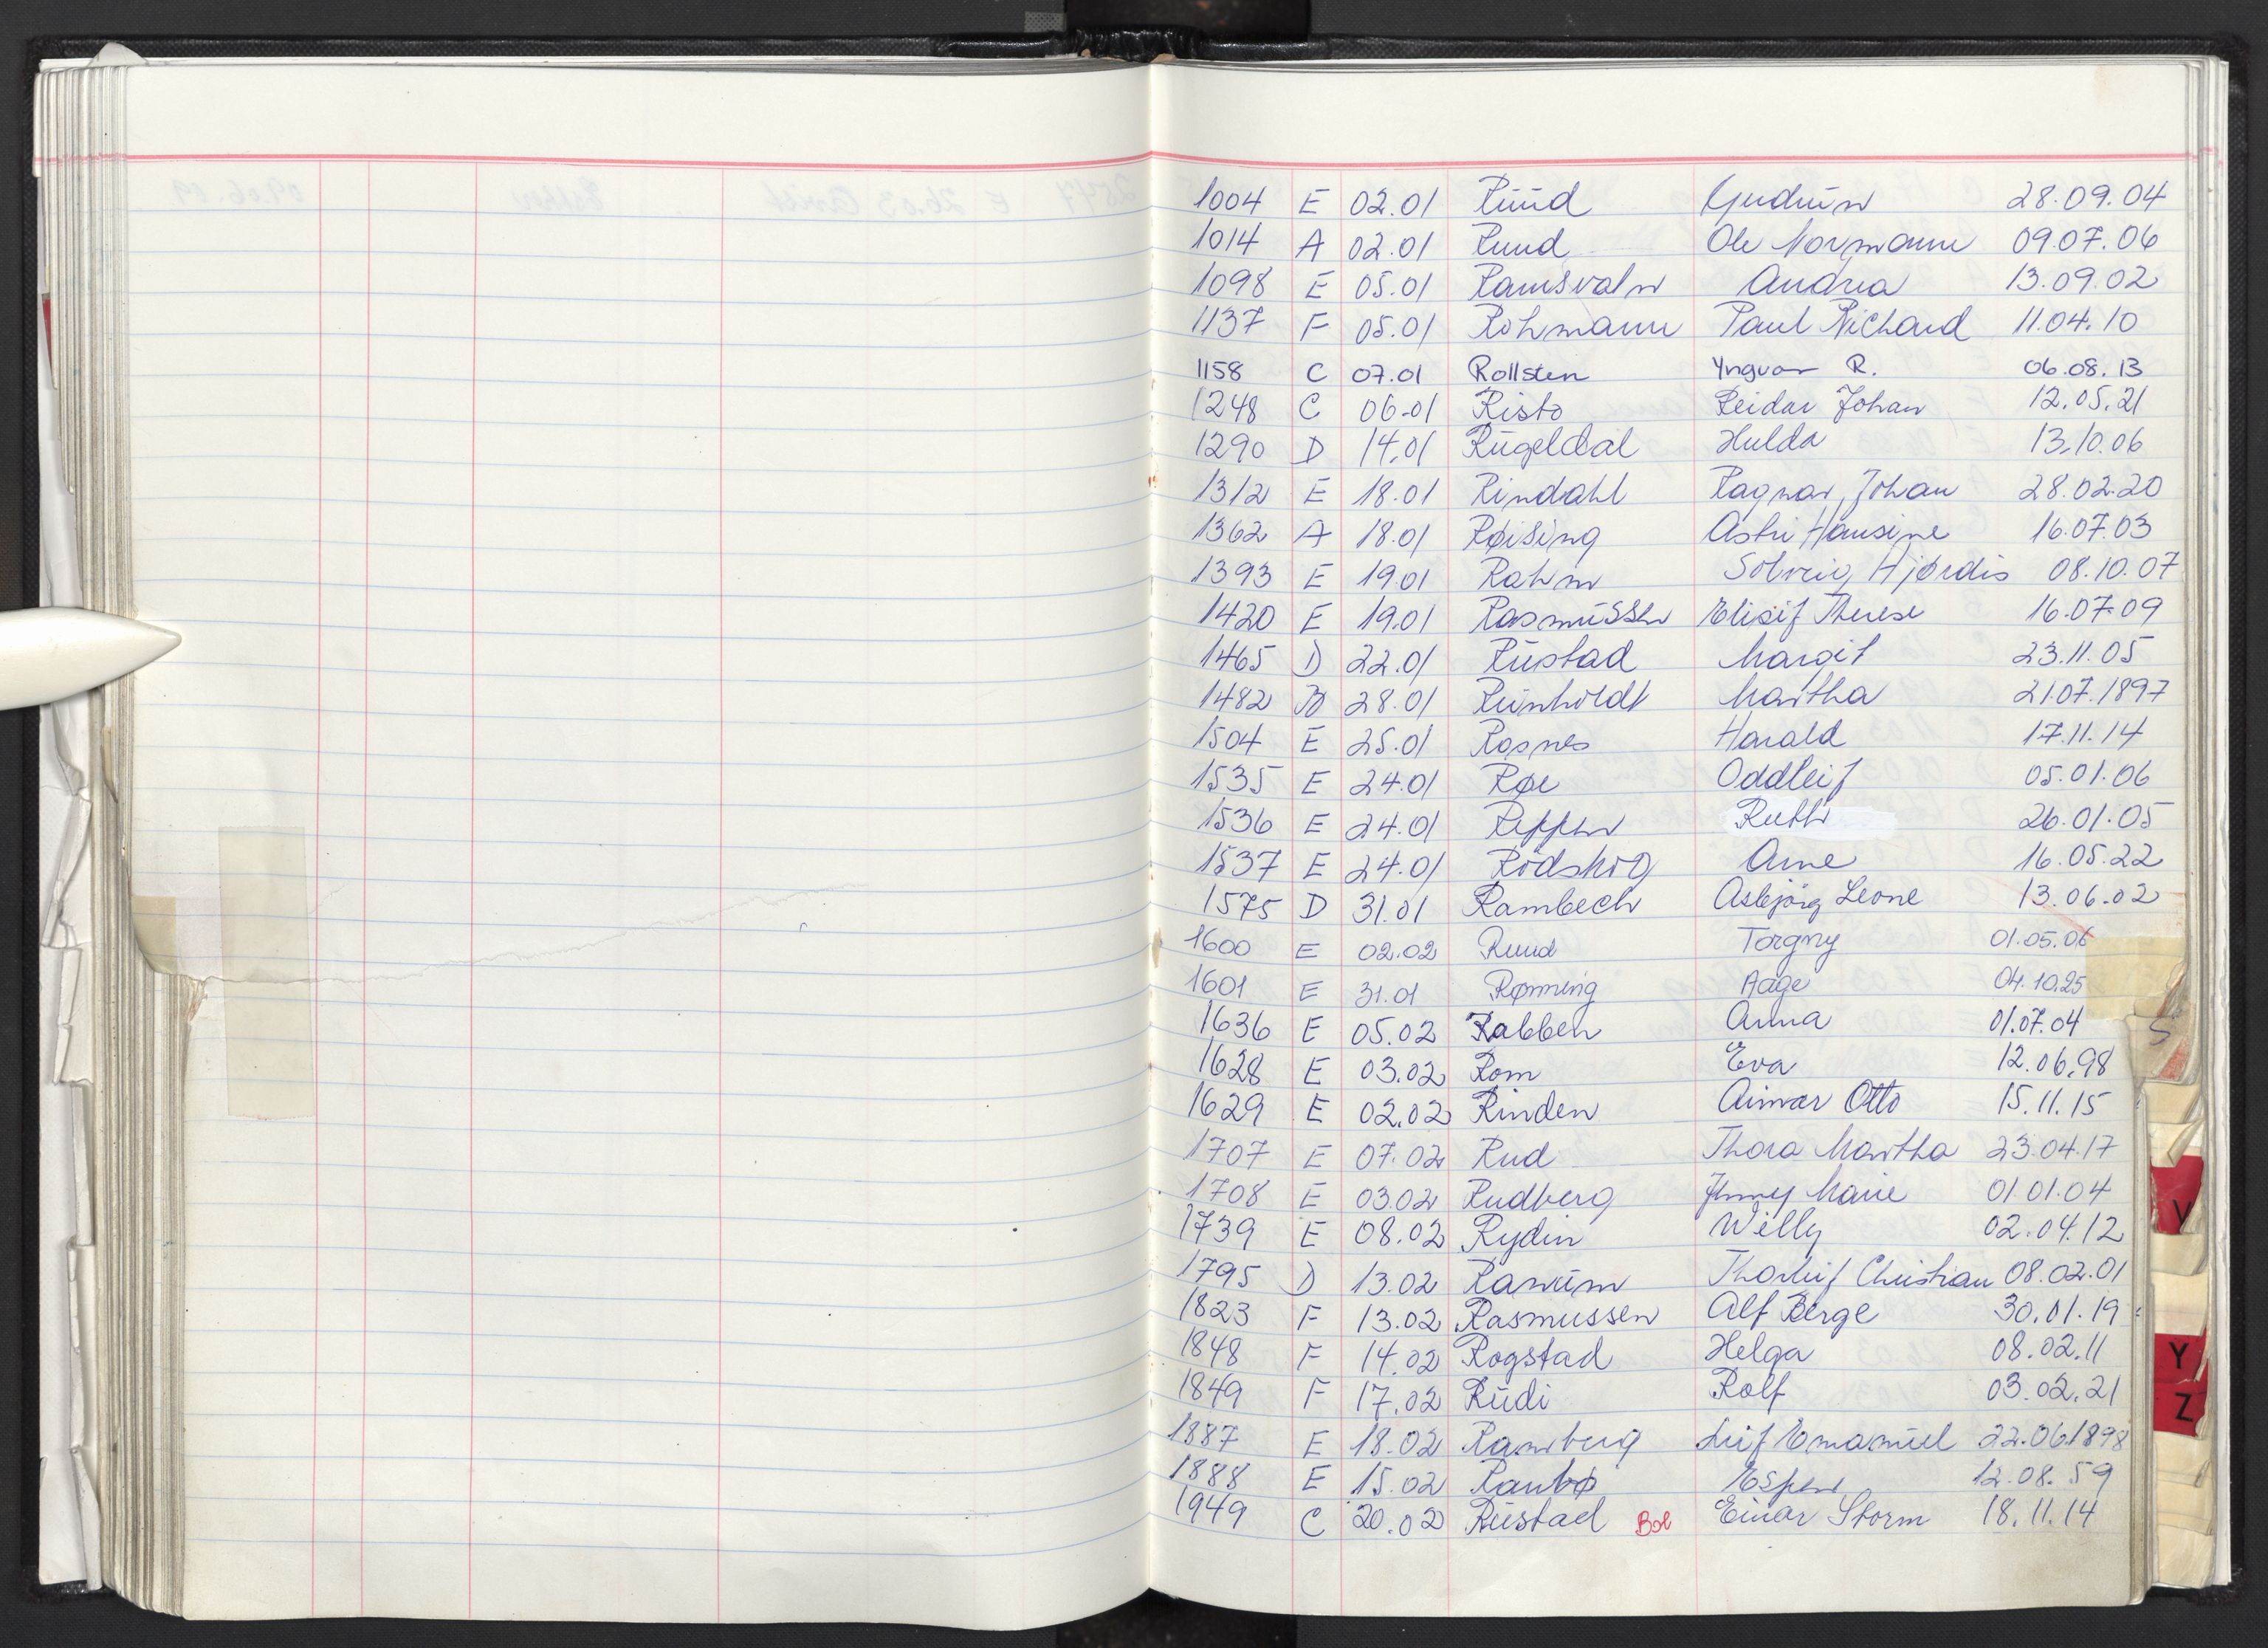 1004 E 02.01 Ruud Gudrun 28.09.04
1014 A 02.01 Ruud Ole Normann 09.07.06
1098 E 05.01 Ramsvatn Andrea 13.09.02
1137 F 05.01 Rohmann Paul Richard 11.04.10
1158 C 07.01 Rollsten Yngvar R. 06.08.13
1248 C 06.01 Risto Reidar Johan 12.05.21
1290 D 14.01 Rugeldal Hulda 13.10.06
1312 E 18.01 Rindahl Ragnar Johan 28.02.20
1362 A 18.01 Røising Astri Hansine 16.07.03
1393 E 19.01 Rahm Solveig Hjørdis 08.10.07
1420 E 19.01 Rasmussen Elisif Therese 16.07.09
1465 D 22.01 Rustad Margit 23.11.05
1482 B 28.01 Reinholdt Martha 21.07.1897
1504 E 25.01 Rosnes Harald 17.11.14
1535 E 24.01 Røe Oddleif 05.01.06
1536 E 24.01 Reppen Ruth 26.01.05
1537 E 24.01 Rödskog Arne 16.05.22
1575 D 31.01 Rambech Asbjörg Leone 13.06.02
1600 E 02.02 Ruud Torgny 01.05.06
1601 E 31.01 Rønning Aage 04.10.25
1636 E 05.02 Rabben Anna 01.07.04
1628 E 03.02 Rom Eva 12.06.98
1629 E 02.02 Rinden Aimar Otto 15.11.15
1707 E 07.02 Rud Thora Martha 23.04.17
1708 E 03.02 Rudberg Jenny Marie 01.01.04
1739 E 08.02 Rydin Willy 02.04.12
1795 D 13.02 Ranum Thorleif Christian 08.02.01
1823 F 13.02 Rasmussen Alf Berge 30.01.19
1848 F 14.02 Rogstad Helga 08.02.11
1849 F 17.02 Rudi Rolf 03.02.21
1887 E 18.02 Ramberg Leif Emanuel 22.06.1898
1888 E 15.02 Raubø Espen 12.08.59
1949 C 20.02 Rustad Bol Einar Storm 18.11.14
V
Y
Z